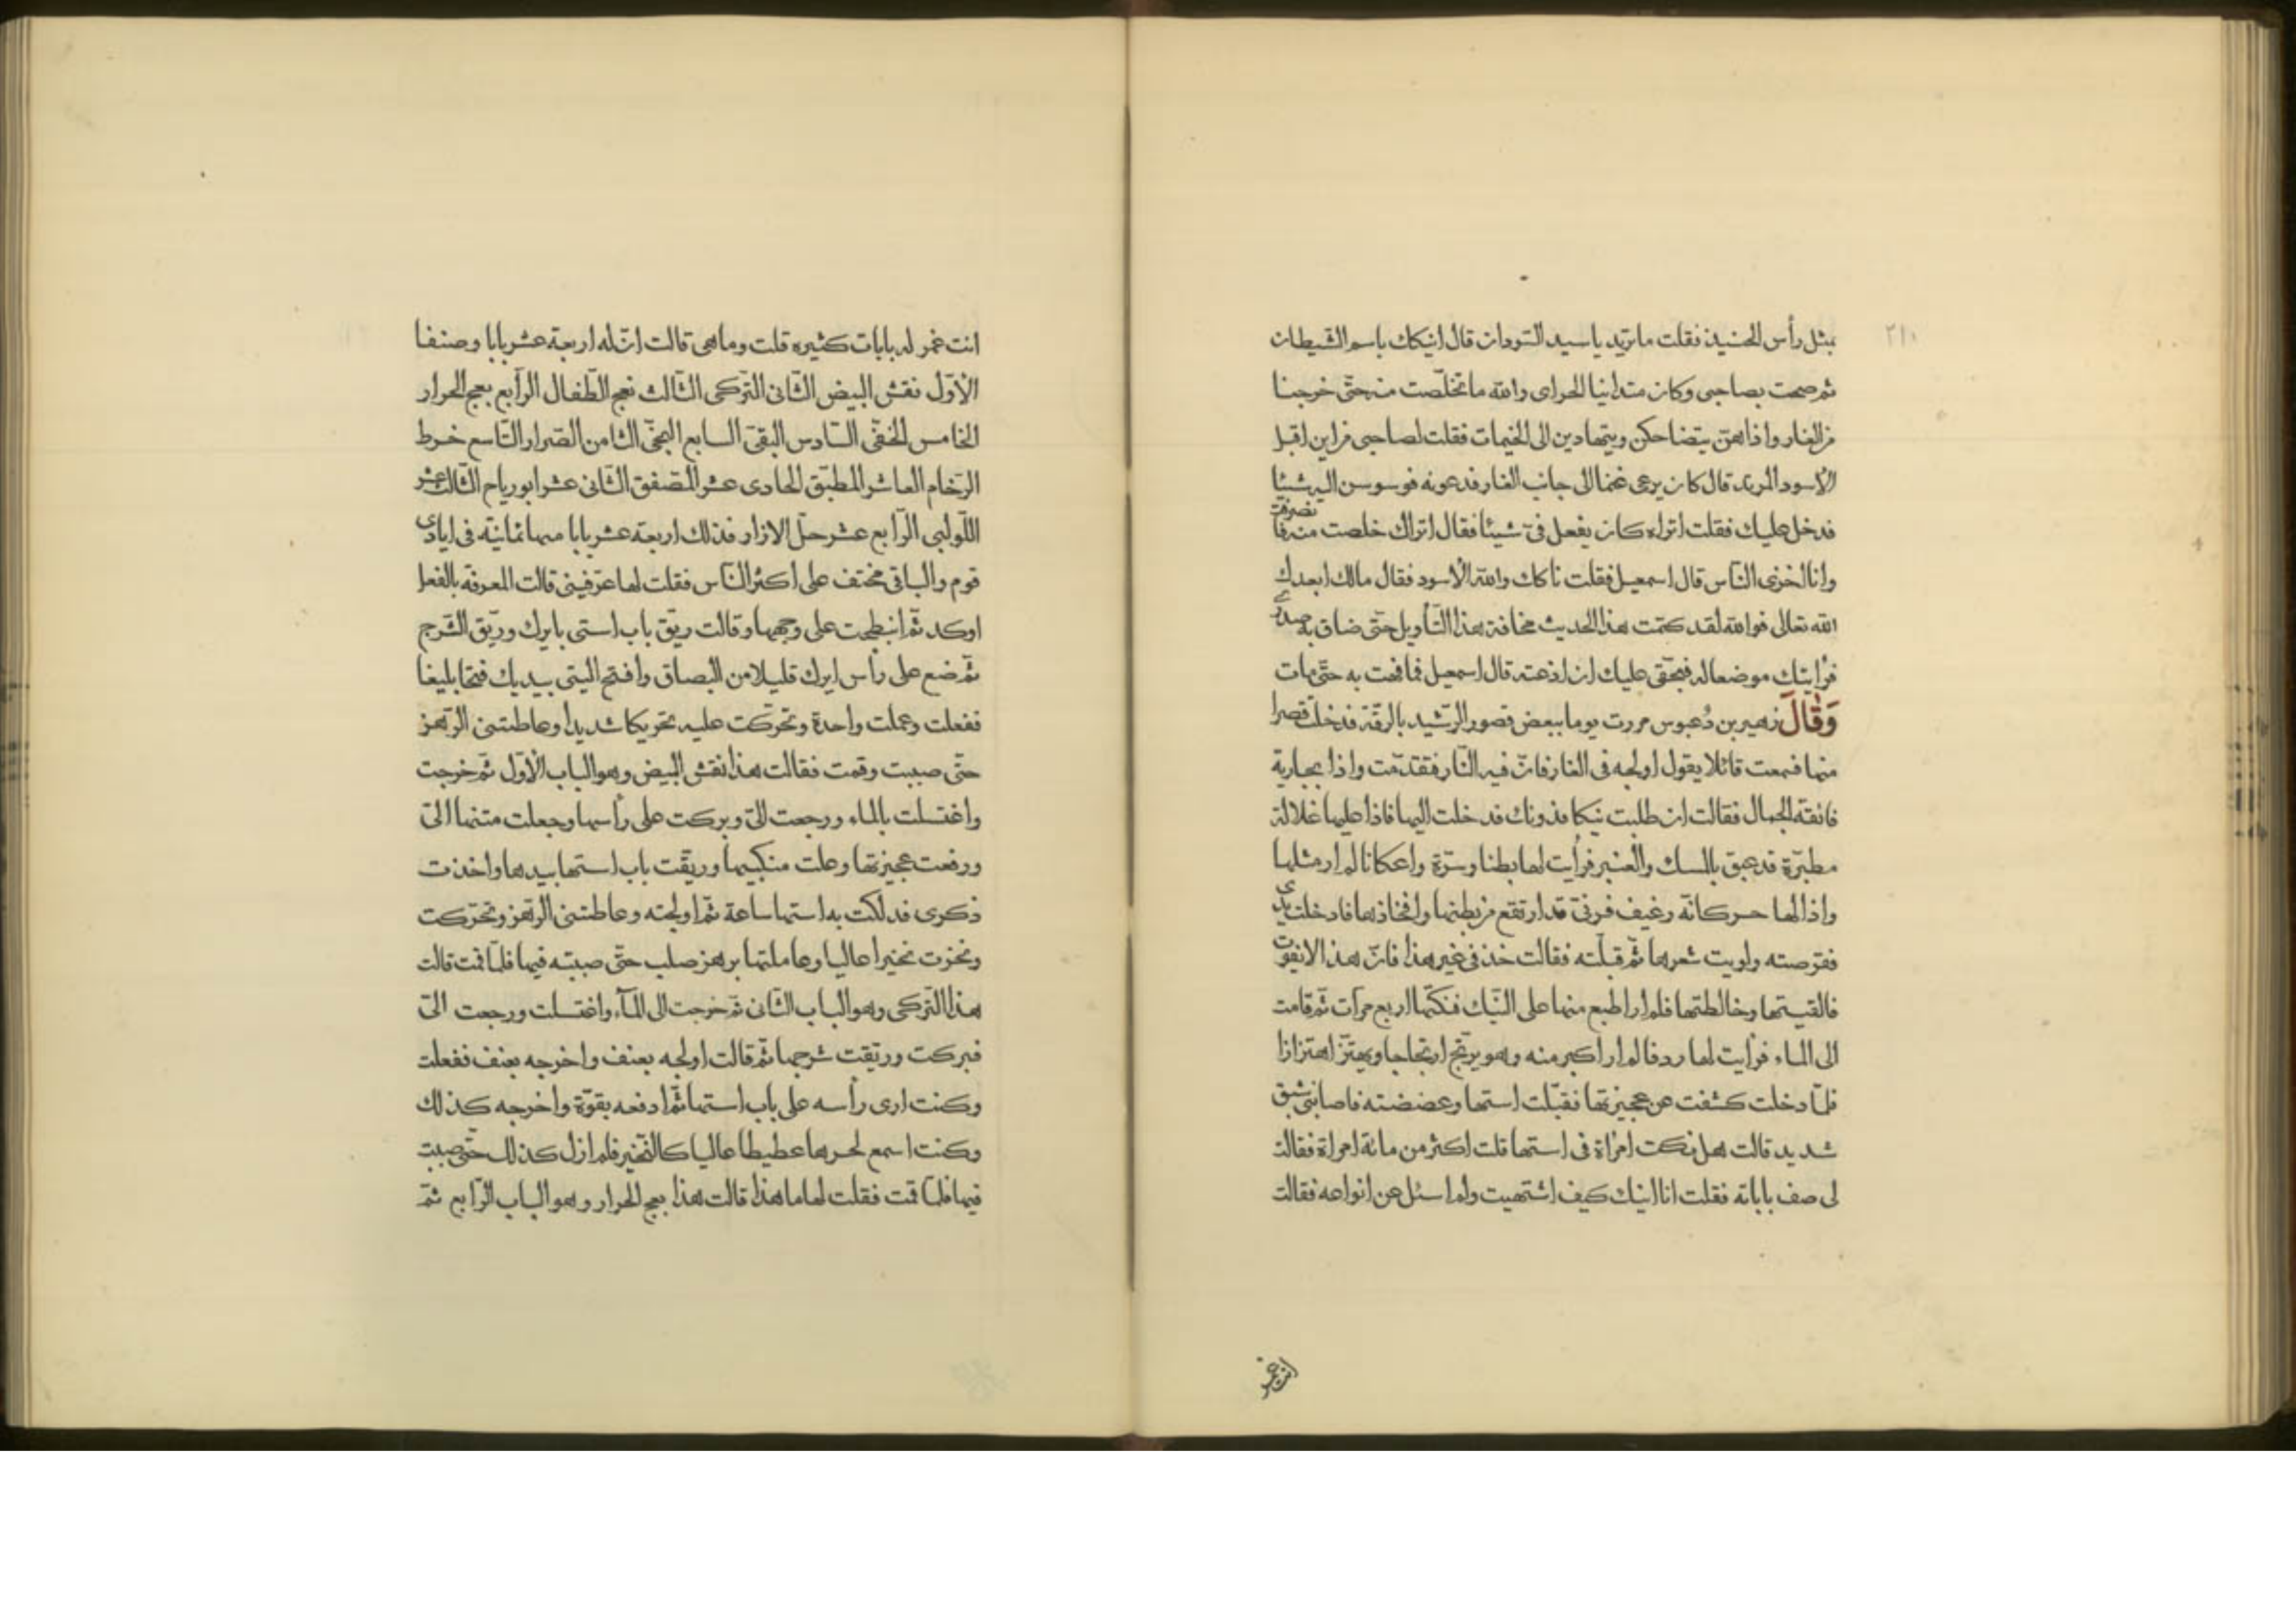 ٢١٠
بمثل رأس الحنيذ فقلت ما تريد يا سيد السودان قال انيكك باسم الشيطان
ثم صحت بصاحبي وكان متدانيا لحراي والله ما تخلصت منه حتى خرجنا
من الغار واذا هن يتضاحكن ويتهادين الى الخيمات فقلت لصاحبي من اين اقبل
الاسود المريد قال كان يرعى غنما الى جانب الغار فدعونه فوسوسن اليه شيئا
فدخل عليك فقلت اتراه كان يفعل في شيئا فقال اتراك خلصت منه فا نصرفت
وانا اخزى الناس قال اسمعيل فقلت ناكك والله الاسود فقال مالك ابعدك
الله تعالى فوالله لقد كتمت هذا الحديث مخافة هذا التأويل حتى ضاق به صدري
فرأيتك موضعا له فبحقي عليك ان اذعته قال اسمعيل فما فهت به حتى مات
وَقَالَ زهير بن دُعبوس مررت يوما ببعض قصور الرشيد بالرقة فدخلت قصرا
منها فسمعت قائلا يقول اولجه في الغار فان فيه النار فتقدمت واذا بجارية
فائقة الجمال فقالت ان طلبت نيكا فدونك فدخلت اليها فاذا عليها غلالة
مطيرة قد عبق بالمسك والعنبر فرأيت لها بطنا وسرة واعكانا لم ار مثلها
واذا لها حر كانه رغيف فرني قد ارتفع من بطنها وافخاذها فادخلت يدى
فقرصته ولويت شعرها ثم قبلته فقالت خذ في غير هذا فان هذا لا يفوت
فالقيتها وخالطتها فلم ار اطبع منها على النيك فنكتها اربع مرات ثم قامت
الى الماء فرأيت لها ردفا لم ار اكبر منه وهو يرتج ارتجاجا ويهتز اهتزازا
فلما دخلت كشفت عن عجيزتها فقبلت استها وعضضته فاصابني شبق
شديد قالت هل نكت امرأة في استها قلت اكثر من مائة امرأة فقالت
لى صف باباته فقلت انا انيك كيف اشتهيت ولم اسئل عن انواعه فقالت
انت غمر
انت غمر له بابات كثيره قلت وما هي قالت ان له اربعة عشر بابا وصنفا
الاول نقش البيض الثانى التركى الثالث نعج الطفال الرابع بعج الحرار
الخامس الخفى السادس البقى السابع العجى الثامن الصرار التاسع خرط
الرخام العاشر المطبق الحادى عشر المصفق الثانى عشر ابورياح الثالث عشر
اللولبى الرابع عشر حل الازار فذلك اربعة عشر بابا منها ثمانية فى ايادى
قوم والباقى مختف على اكثر الناس فقلت لها عرفينى قالت المعرفة بالفعل
اوكد ثم انبطحت على وجهها وقالت ريق باب استى بايرك وريق الشرج
ثم ضع على رأس ايرك قليلا من البصاق وافتح اليتى بيديك فتحا بليغا
ففعلت وعملت واحدة وتحركت عليه تحريكا شديدا وعاطتنى الرهز
حتى صببت وقمت فقالت هذا نقش البيض وهو الباب الاول ثم خرجت
واغتسلت بالماء ورجعت الىّ وبركت على رأسها وجعلت متنها الىّ
ورفعت عجيزتها وعلت منكبيها وريقت باب استها بيدها واخذت
ذكرى فدلكت به استها ساعة ثم اولجته وعاطتنى الرهز وتحركت
ونخرت نخيرا عاليا وعاملتها برهز صلب حتى صببته فيها فلما قمت قالت
هذا التركى وهو الباب الثانى ثم خرجت الى المآء واغتسلت ورجعت الىّ
فبركت وريقت شرجها ثم قالت اولجه بعنف واخرجه بعنف ففعلت
وكنت ارى رأسه على باب استها ثم ادفعه بقوة واخرجه كذلك
وكنت اسمع لحرها عطيطا عاليا كالنخير فلم ازل كذلك حتى صببت
فيها فلما قمت فقلت لها ما هذا قالت هذا بعج الحرار وهو الباب الرابع ثم